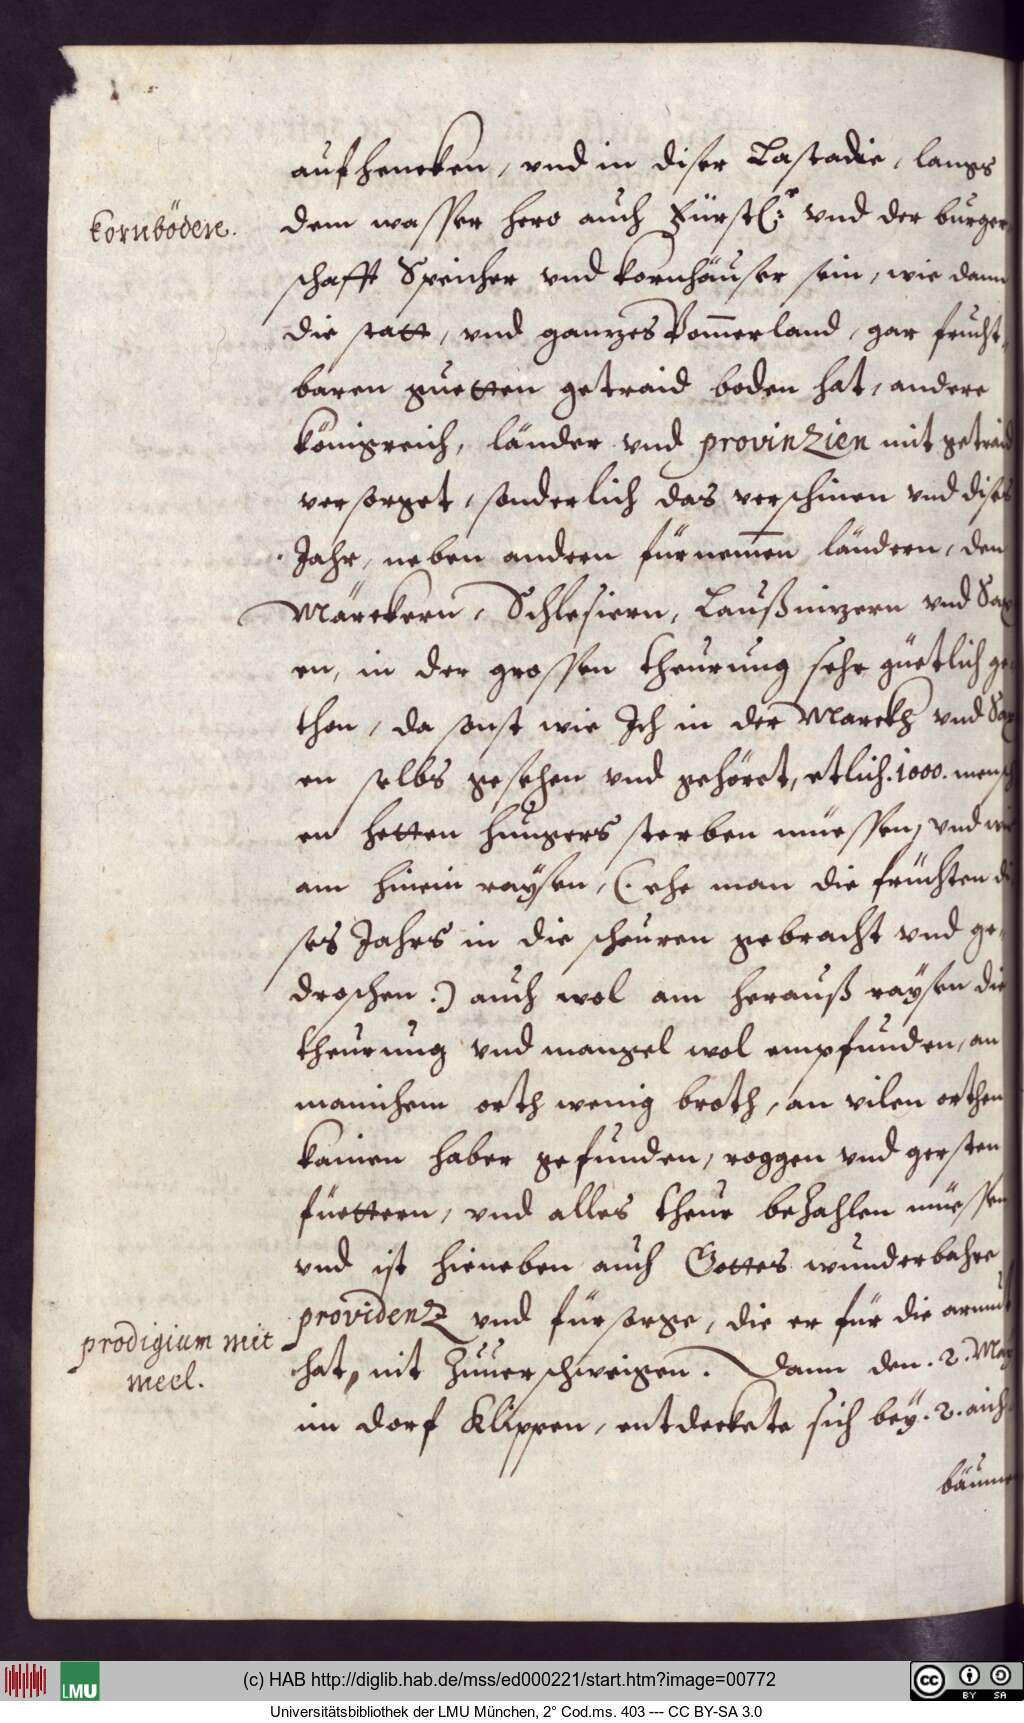 aufhencken, vnd in diser Lastadie, langs
kornbödene.
dem wasser hero auch Fürstl:r vnd der burger
schafft Speicher vnd kornhäuser sein, wie dann
die statt, vnd ganzes Pom̅erland, gar frucht,
baren guetten getraid boden hat, andere
königreich, länder vnd provinzien mit getraid
versorget, sonderlich das verschinen vnd dises
Jahr, neben andern fürnem̅en ländern, den
Märckern, Schlesiern, Laußnitzern vnd Sax
en, in der grossen theurung sehr güetlich ge
thon, da sonst wie Ich in der Marckh vnd Sax
en selbs gesehen vnd gehöret, etlich .1000. mensch
en hetten hungers sterben müessen, vnd wir
am hinein raÿsen, (. ehe man die früchten di
ses Jahrs in die scheuren gebracht vnd ge,
droschen .) auch wol am herauß raÿsen die
theurung vnd mangel wol empfunden, an
manichem orth wenig broth, an vilen orthen
kainen haber gefunden, roggen vnd gersten
füettern, vnd alles theur bezahlen müessen
vnd ist hieneben auch Gottes wunderbahre
providenz vnd fürsorge, die er für die armut
prodigium mit
meel.
hat, nit zuuerschweigen. Dann den .2. Maÿ
im dorf Klippen, entdeckete sich beÿ .2. aich
bäumen
(c) HAB http://diglib.hab.de/mss/ed000221/start.htm?image=00772
LMU
cc BY SA
Universitätsbibliothek der LMU München, 2° Cod.ms. 403 --- CC BY-SA 3.0